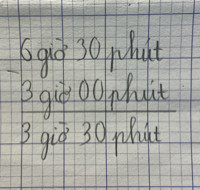 6 giờ 30 phút
-
3 giờ 00 phút
3 giờ 30 phút